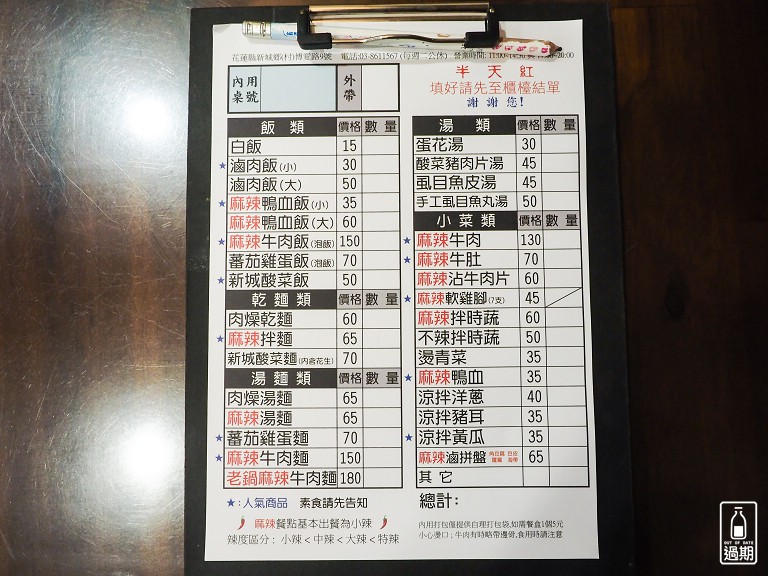 花蓮縣新城鄉(村)博愛路9號 電話:03-8611567 (每週二公休) 營業時間: 11:00-14:30
內用桌號
外帶
半天紅
填好請先至櫃檯結單
謝謝您!
飯類 價格 數量
白飯 15
★滷肉飯(小) 30
滷肉飯(大) 50
★麻辣鴨血飯(小) 35
麻辣鴨血飯(大) 60
★麻辣牛肉飯(泡飯) 150
蕃茄雞蛋飯(泡飯) 70
★新城酸菜飯 50
乾麵類 價格 數量
肉燥乾麵 60
★麻辣拌麵 65
新城酸菜麵(內含花生) 70
湯麵類 價格 數量
肉燥湯麵 65
麻辣湯麵 65
★蕃茄雞蛋麵 70
★麻辣牛肉麵 150
老鍋麻辣牛肉麵 180
★:人氣商品 素食請先告知
麻辣餐點基本出餐為小辣
辣度區分: 小辣<中辣<大辣<特辣
湯類 價格 數量
蛋花湯 30
酸菜豬肉片湯 45
虱目魚皮湯 45
手工虱目魚丸湯 50
小菜類 價格 數量
★麻辣牛肉 130
★麻辣牛肚 70
麻辣沾牛肉片 60
★麻辣軟雞腳(7支) 45
麻辣拌時蔬 60
不辣拌時蔬 50
燙青菜 35
★麻辣鴨血 35
涼拌洋蔥 40
涼拌豬耳 35
★涼拌黃瓜 35
麻辣滷拼盤 65
其它
總計:
內用打包僅提供自理打包袋,如需餐盒1個5元
小心燙口; 牛肉有時略帶邊骨,食用時請注意
OUT OF DATE
過期